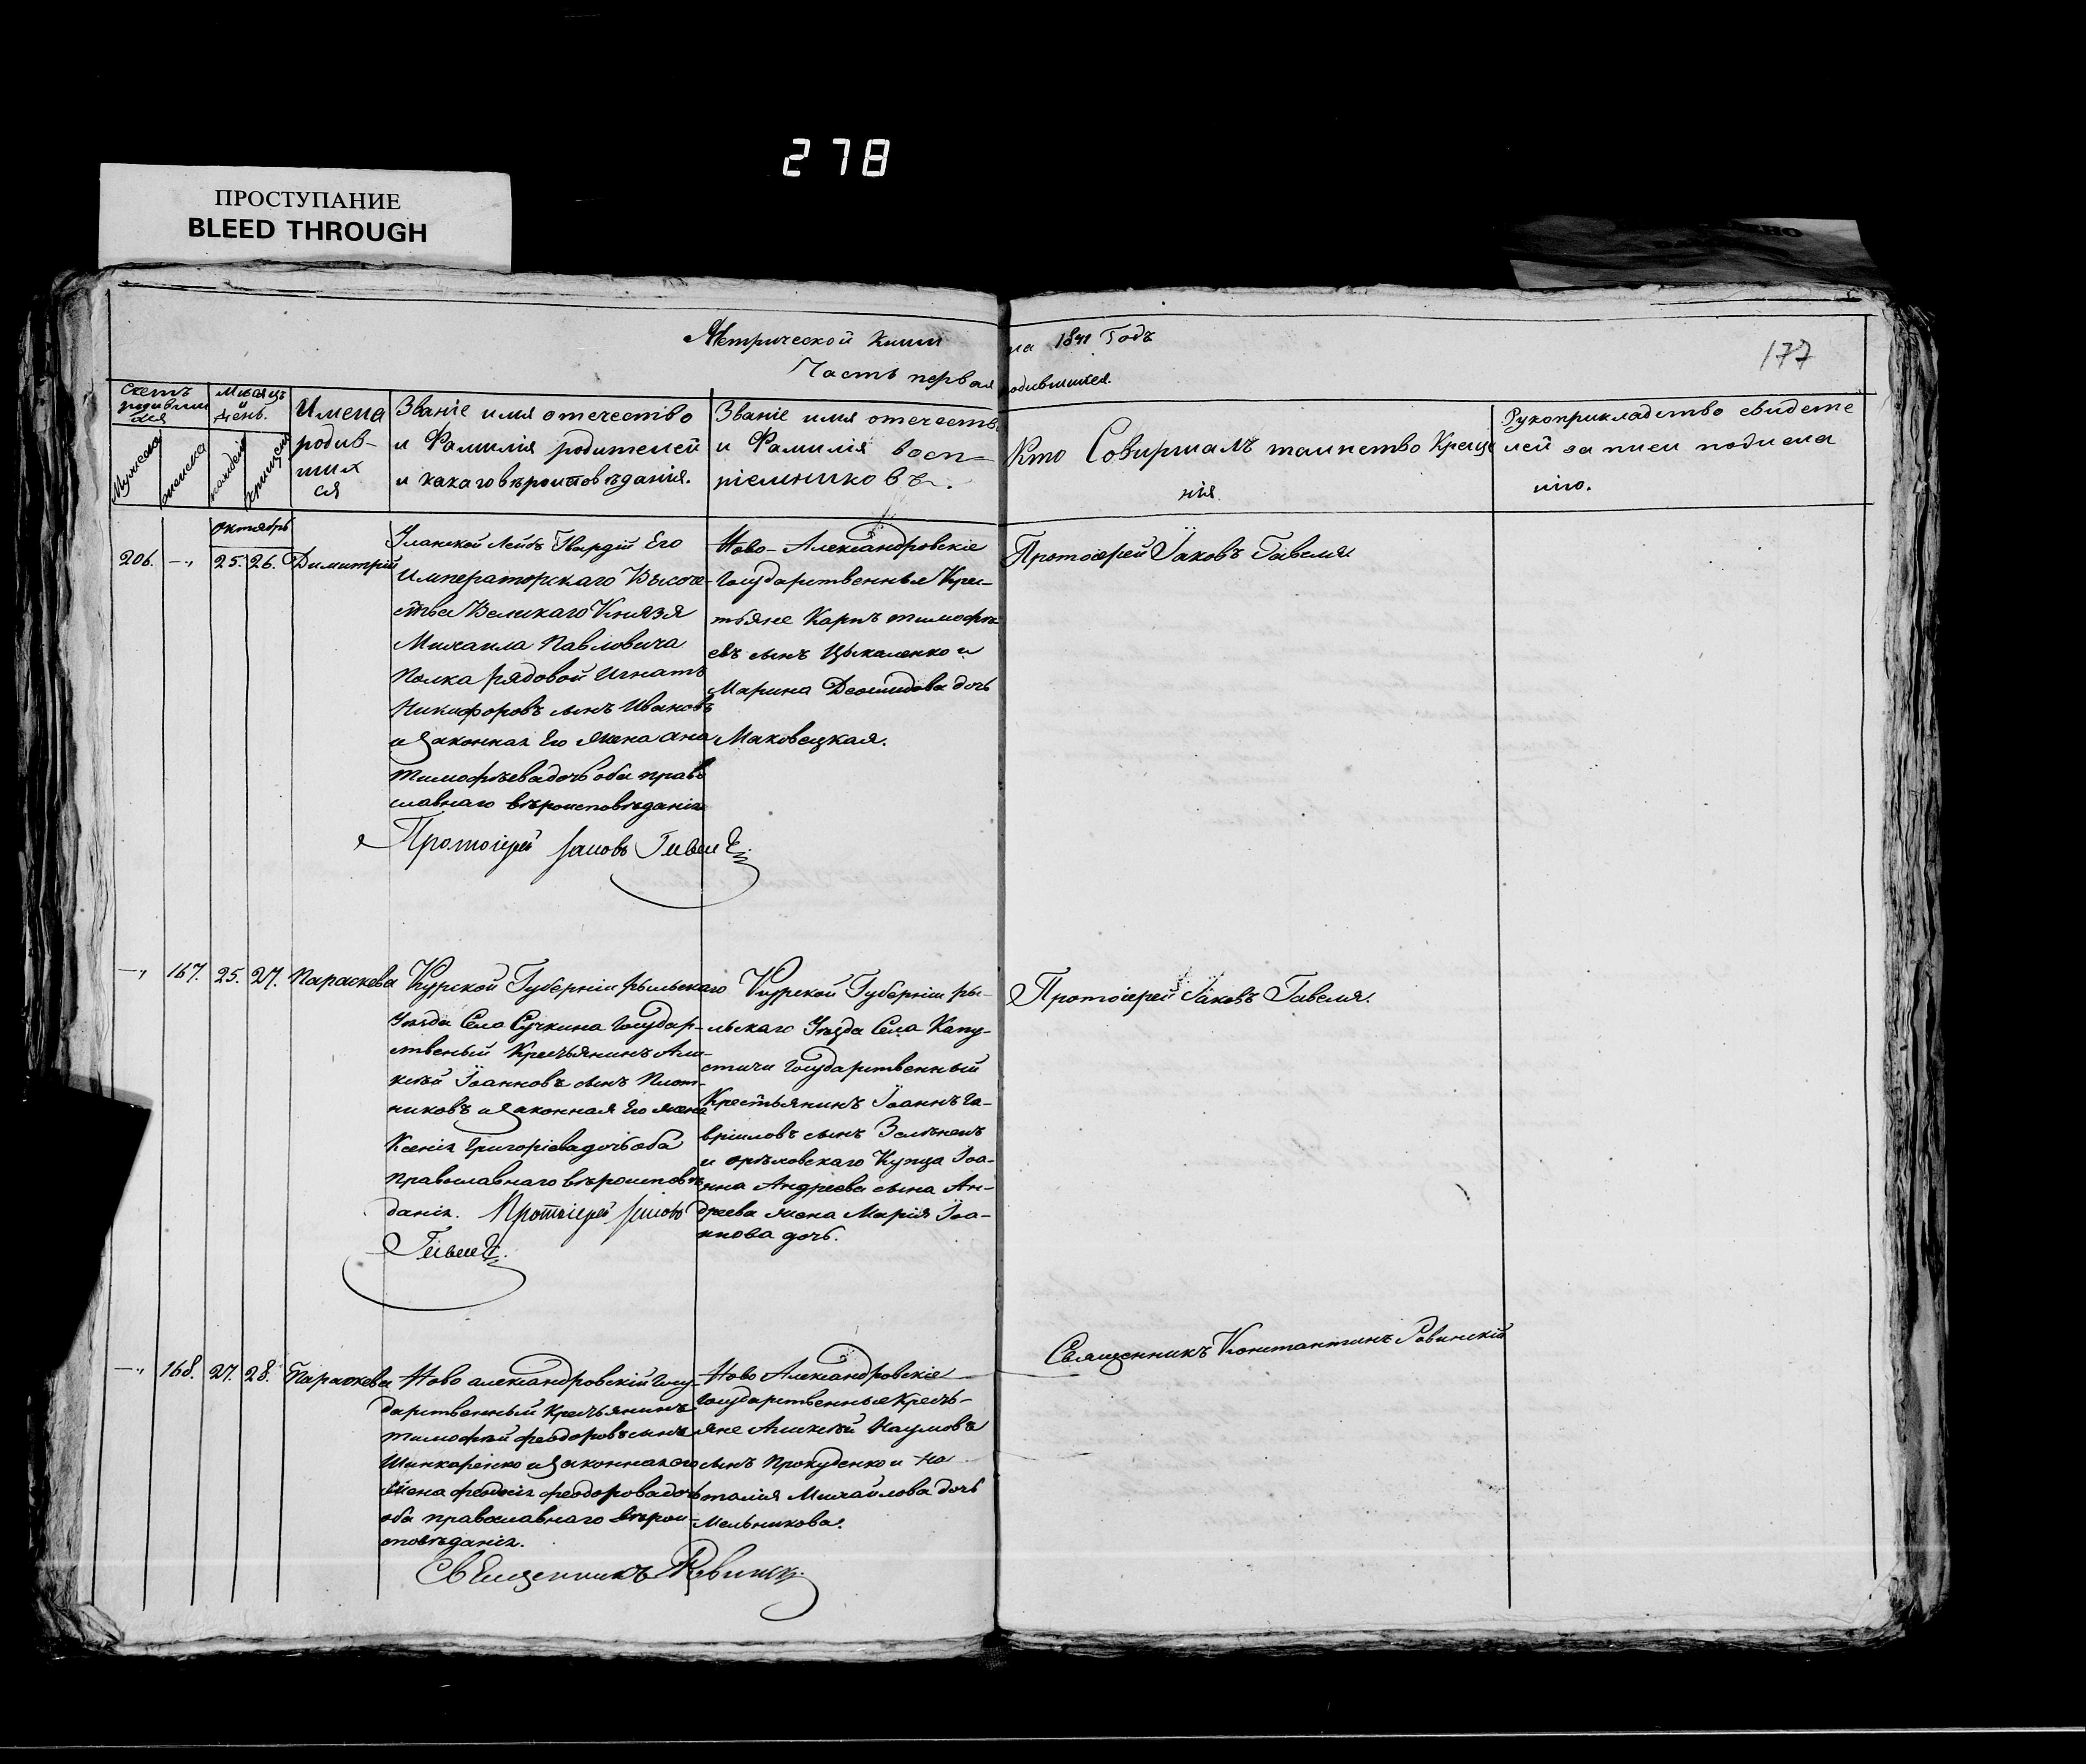 278
ПРОСТУПАНИЕ
BLEED THROUGH
Метрической книги
на 1841 Годъ
177
Часть первая
родившихся.
Счетъ родившихся
Месяцъ и день.
Имена
родив-
ших
ся
Мужеска
женска
рожденія
крещенія
Званіе имя отечество
и Фамилія родителей
и какаго вѣроисповѣданія.
Званіе имя отечество
и Фамилія восп-
ріемниковъ.
Кто Совершалъ таинство Креще
нія
Рукоприкладство свидете
лей записи
Октябрь
206. —„ 25. 26. Димитрій
Уланской Лейбъ Гвардіи Его
Императорскаго Высоче-
ства Великаго Князя
Михаила Павловича
Полка рядовой Игнатъ
Никифоровъ сынъ Ивановъ
и Законная Его жена Анна
Тимофѣева дочь оба право
славнаго вѣроисповѣданія
Протоіерей Іаковъ Гавеля
Ново-Александровскіе
Государственные Крес-
тьяне Карпъ Тимофѣ
евъ сынъ Цыкаленко и
Марина дочь
Маковецкая.
Протоіерей Іаковъ Гавеля
—„ 167. 25. 27. Параскева
Курской Губерніи Рыльскаго
Уезда Села Сучкина Государ-
ственый Крестьянинъ Але-
ксѣй Іоанновъ сынъ Плот-
никовъ и Законная Его жена
Ксенія Григоріева дочь оба
православнаго вѣроисповѣ
данія. Протоіерей Іаковъ
Гавеля.
Курской Губерніи Ры-
льскаго Уѣзда Села Капу-
стичи Государственный
Крестьянинъ Іоаннъ Га-
вріиловъ сынъ
и орѣховскаго Купца Іоа-
нна Андреева сына Ан-
дреева жена Марія Іоа-
ннова дочь.
Протоіерей Іаковъ Гавеля.
—„ 168. 27. 28. Параскева
Ново александровскій госу-
дарственный Крестьянинъ
Тимофѣй Феодоровъ сынъ
Шинкаренко и Законная его
жена Феодоровa дочь
оба православнаго вѣрои-
сповѣданія.
Священникъ Ровинск
Ново Александровскіе
государственные Кресть-
яне Алексѣй Наумовъ
сынъ Прокуденко и На
талія Михайлова дочь
Мельникова.
Священникъ Константинъ Ровинскій